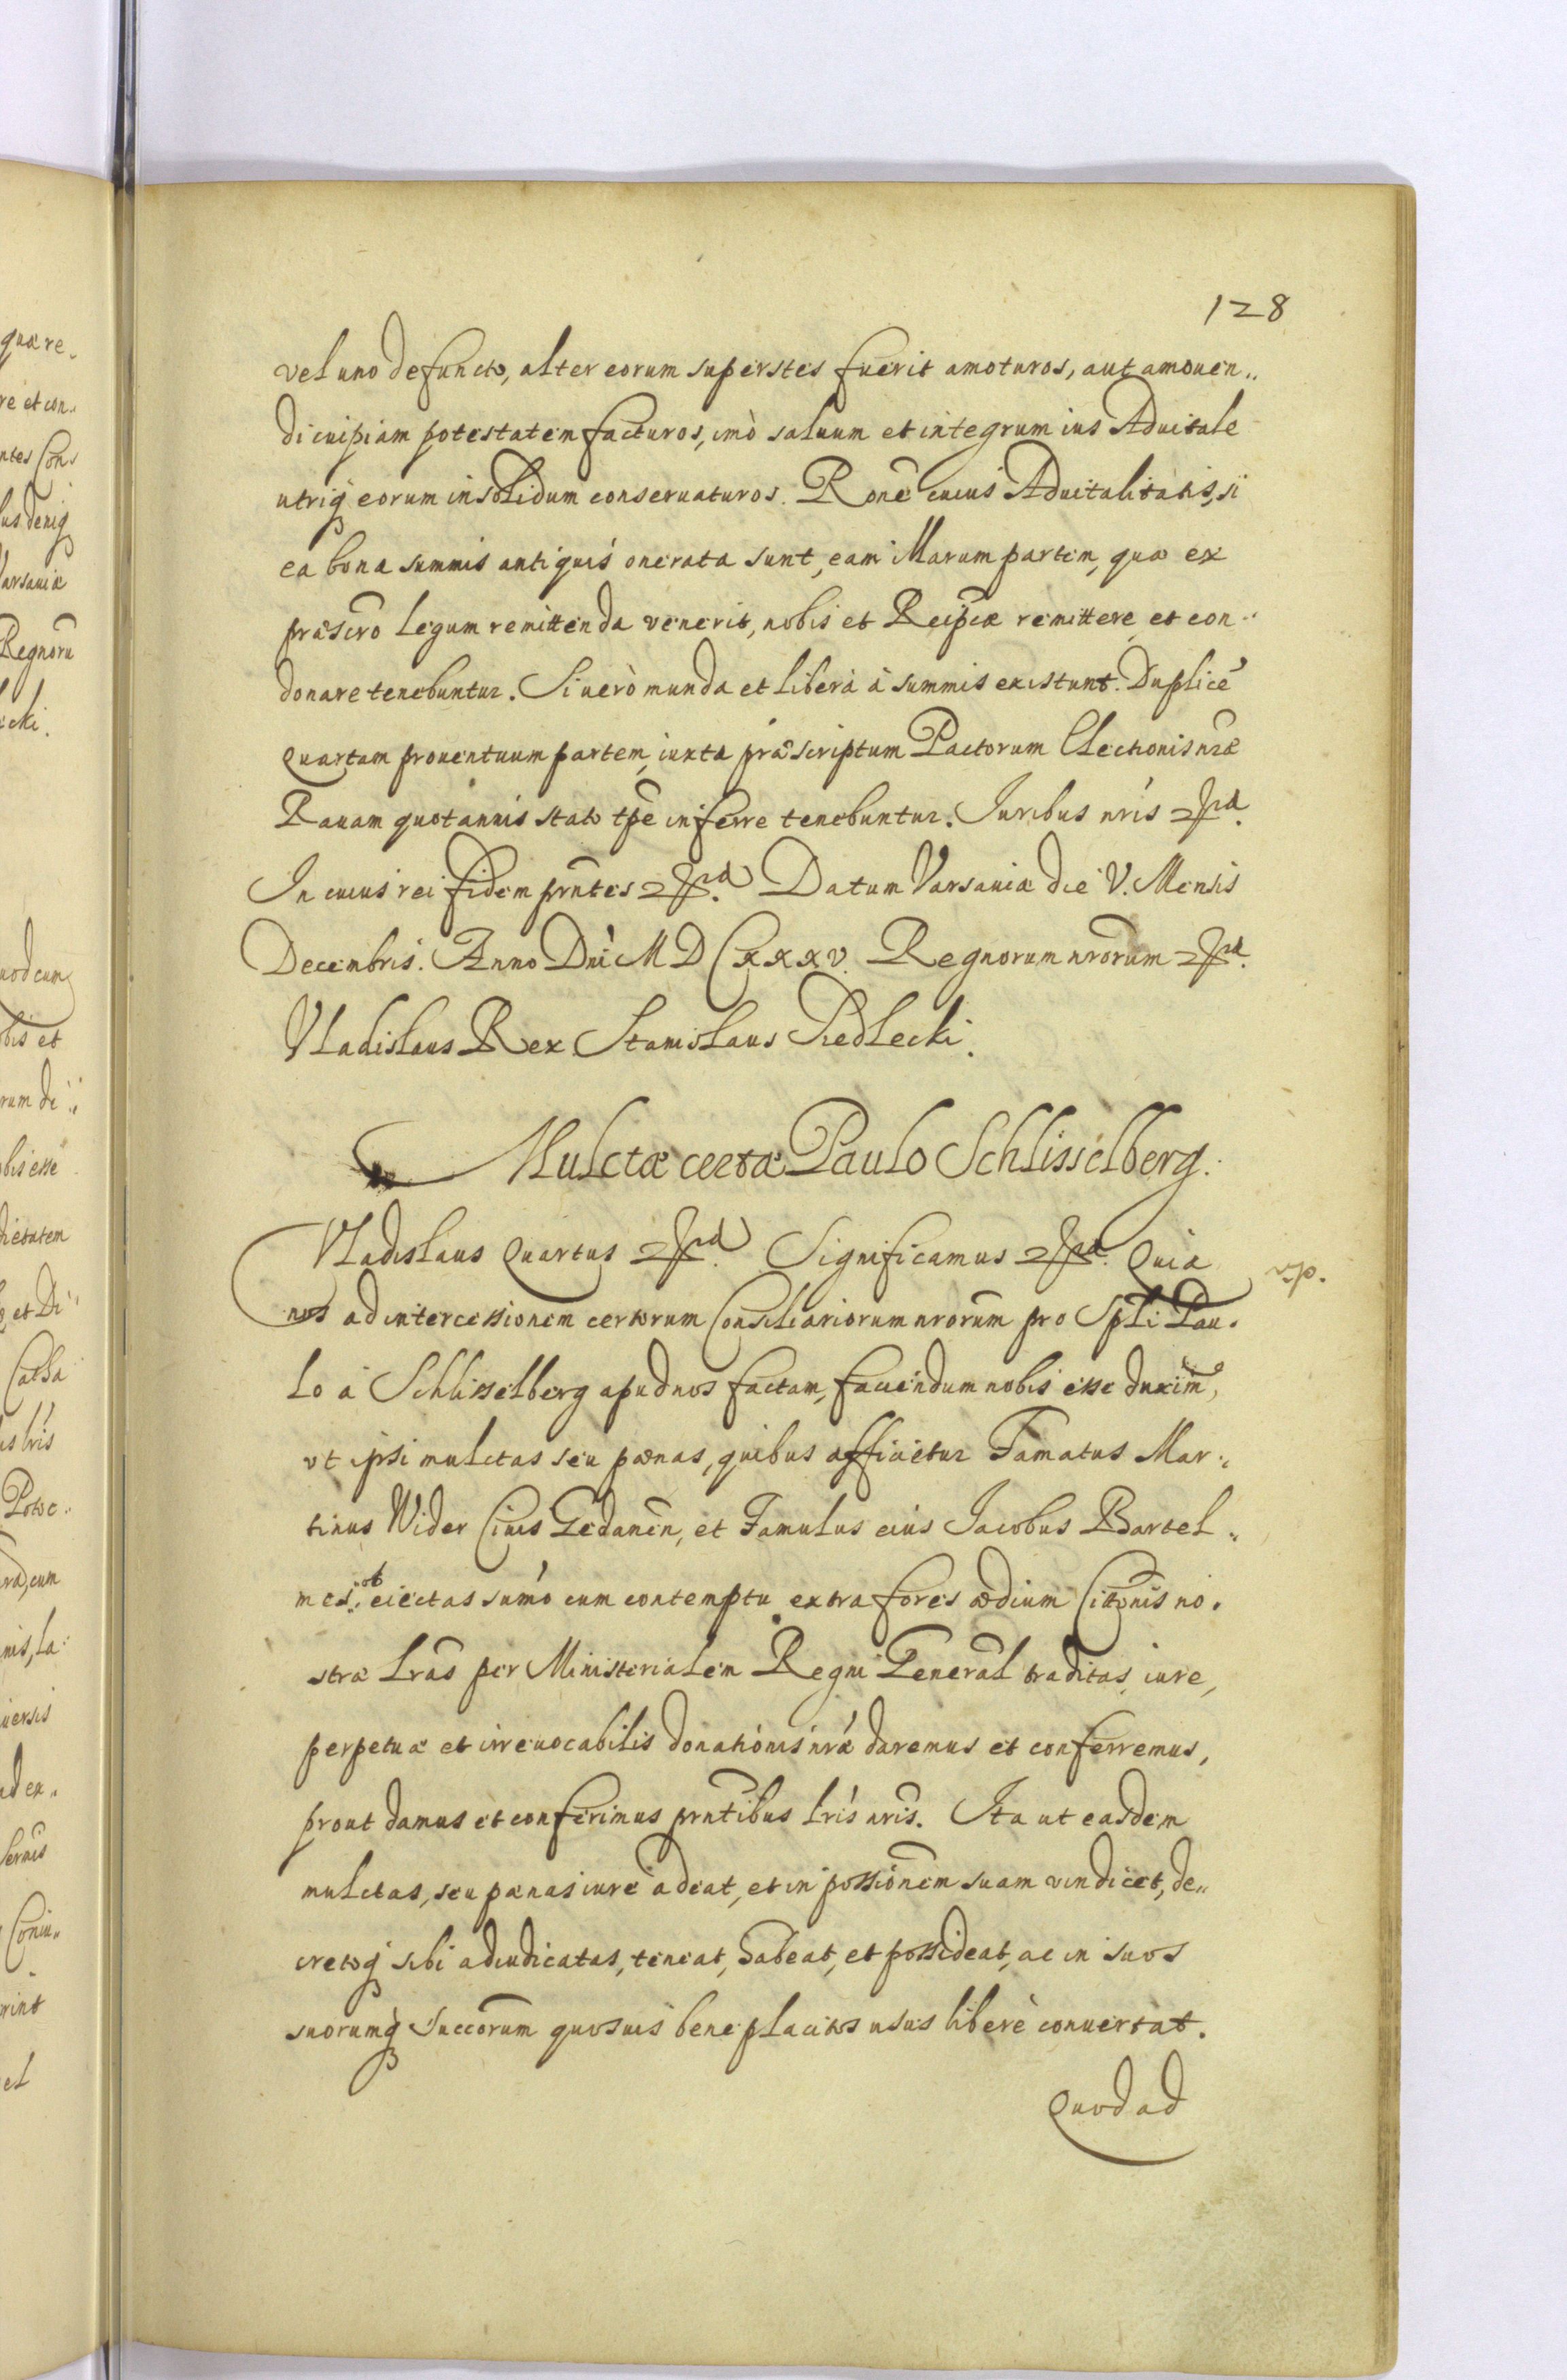 128
vel uno defuncto, alter eorum superstes fuerit amoturos, aut amouen„
di cuipiam potestatem facturos, imò saluum et integrum ius Aduitale
utriq̃ eorum in solidum conseruaturos. Rone cuius Aduitalitatis, si
ea bona summis antiquis onerata sunt, eam illarum partem, quæ ex
præscro legum remittenda venerit, nobis et Reipcæ remittere et con„
donare tenebuntur. Si uerò munda et libera à summis existunt. Duplicẽ
quartam prouentuum partem, iuxta præscriptum Pactorum Electionis nræ
Rauam quotannis stato tpe inferre tenebuntur. Iuribus nris
In cuius rei fidem prntes Datum Varsauiæ die V. Mensis
Decembris. Anno Dni MDCXXXV. Regnorum nrorum
Vladislaus Rex Stanislaus Siedlecki.
Mulctæ certæ Paulo Schlisselberg.
Vladislaus Quartus Significamus Quia
nos ad intercessionem certorum Consiliariorum nrorum pro Spli Pau„
lo à Schlisselberg apud nos factam, faciendum nobis esse duxim9,
vt ipsi mulctas seu pœnas, quibus afficietur Famatus Mar„
tinus Wider Ciuis Gedanen, et Famulus eius Iacobus Bartel„
mes, ob eiectas sumo cum contemptu extra fores ædium Cittonis no„
stræ lras per Ministerialem Regni General traditas, iure,
perpetuæ et irreuocabilis donationis nræ daremus et conferremus,
prout damus et conferimus prntibus lris nris. Ita ut easdem
mulctas, seu pœnas iure adeat, et in possionem suam vindicet, de„
cretoq̃ sibi adiudicatas, teneat, habeat, et possideat, ac in suos
suorumq̃ succorum quosuis beneplacitos usus liberè conuertat.
Quod ad